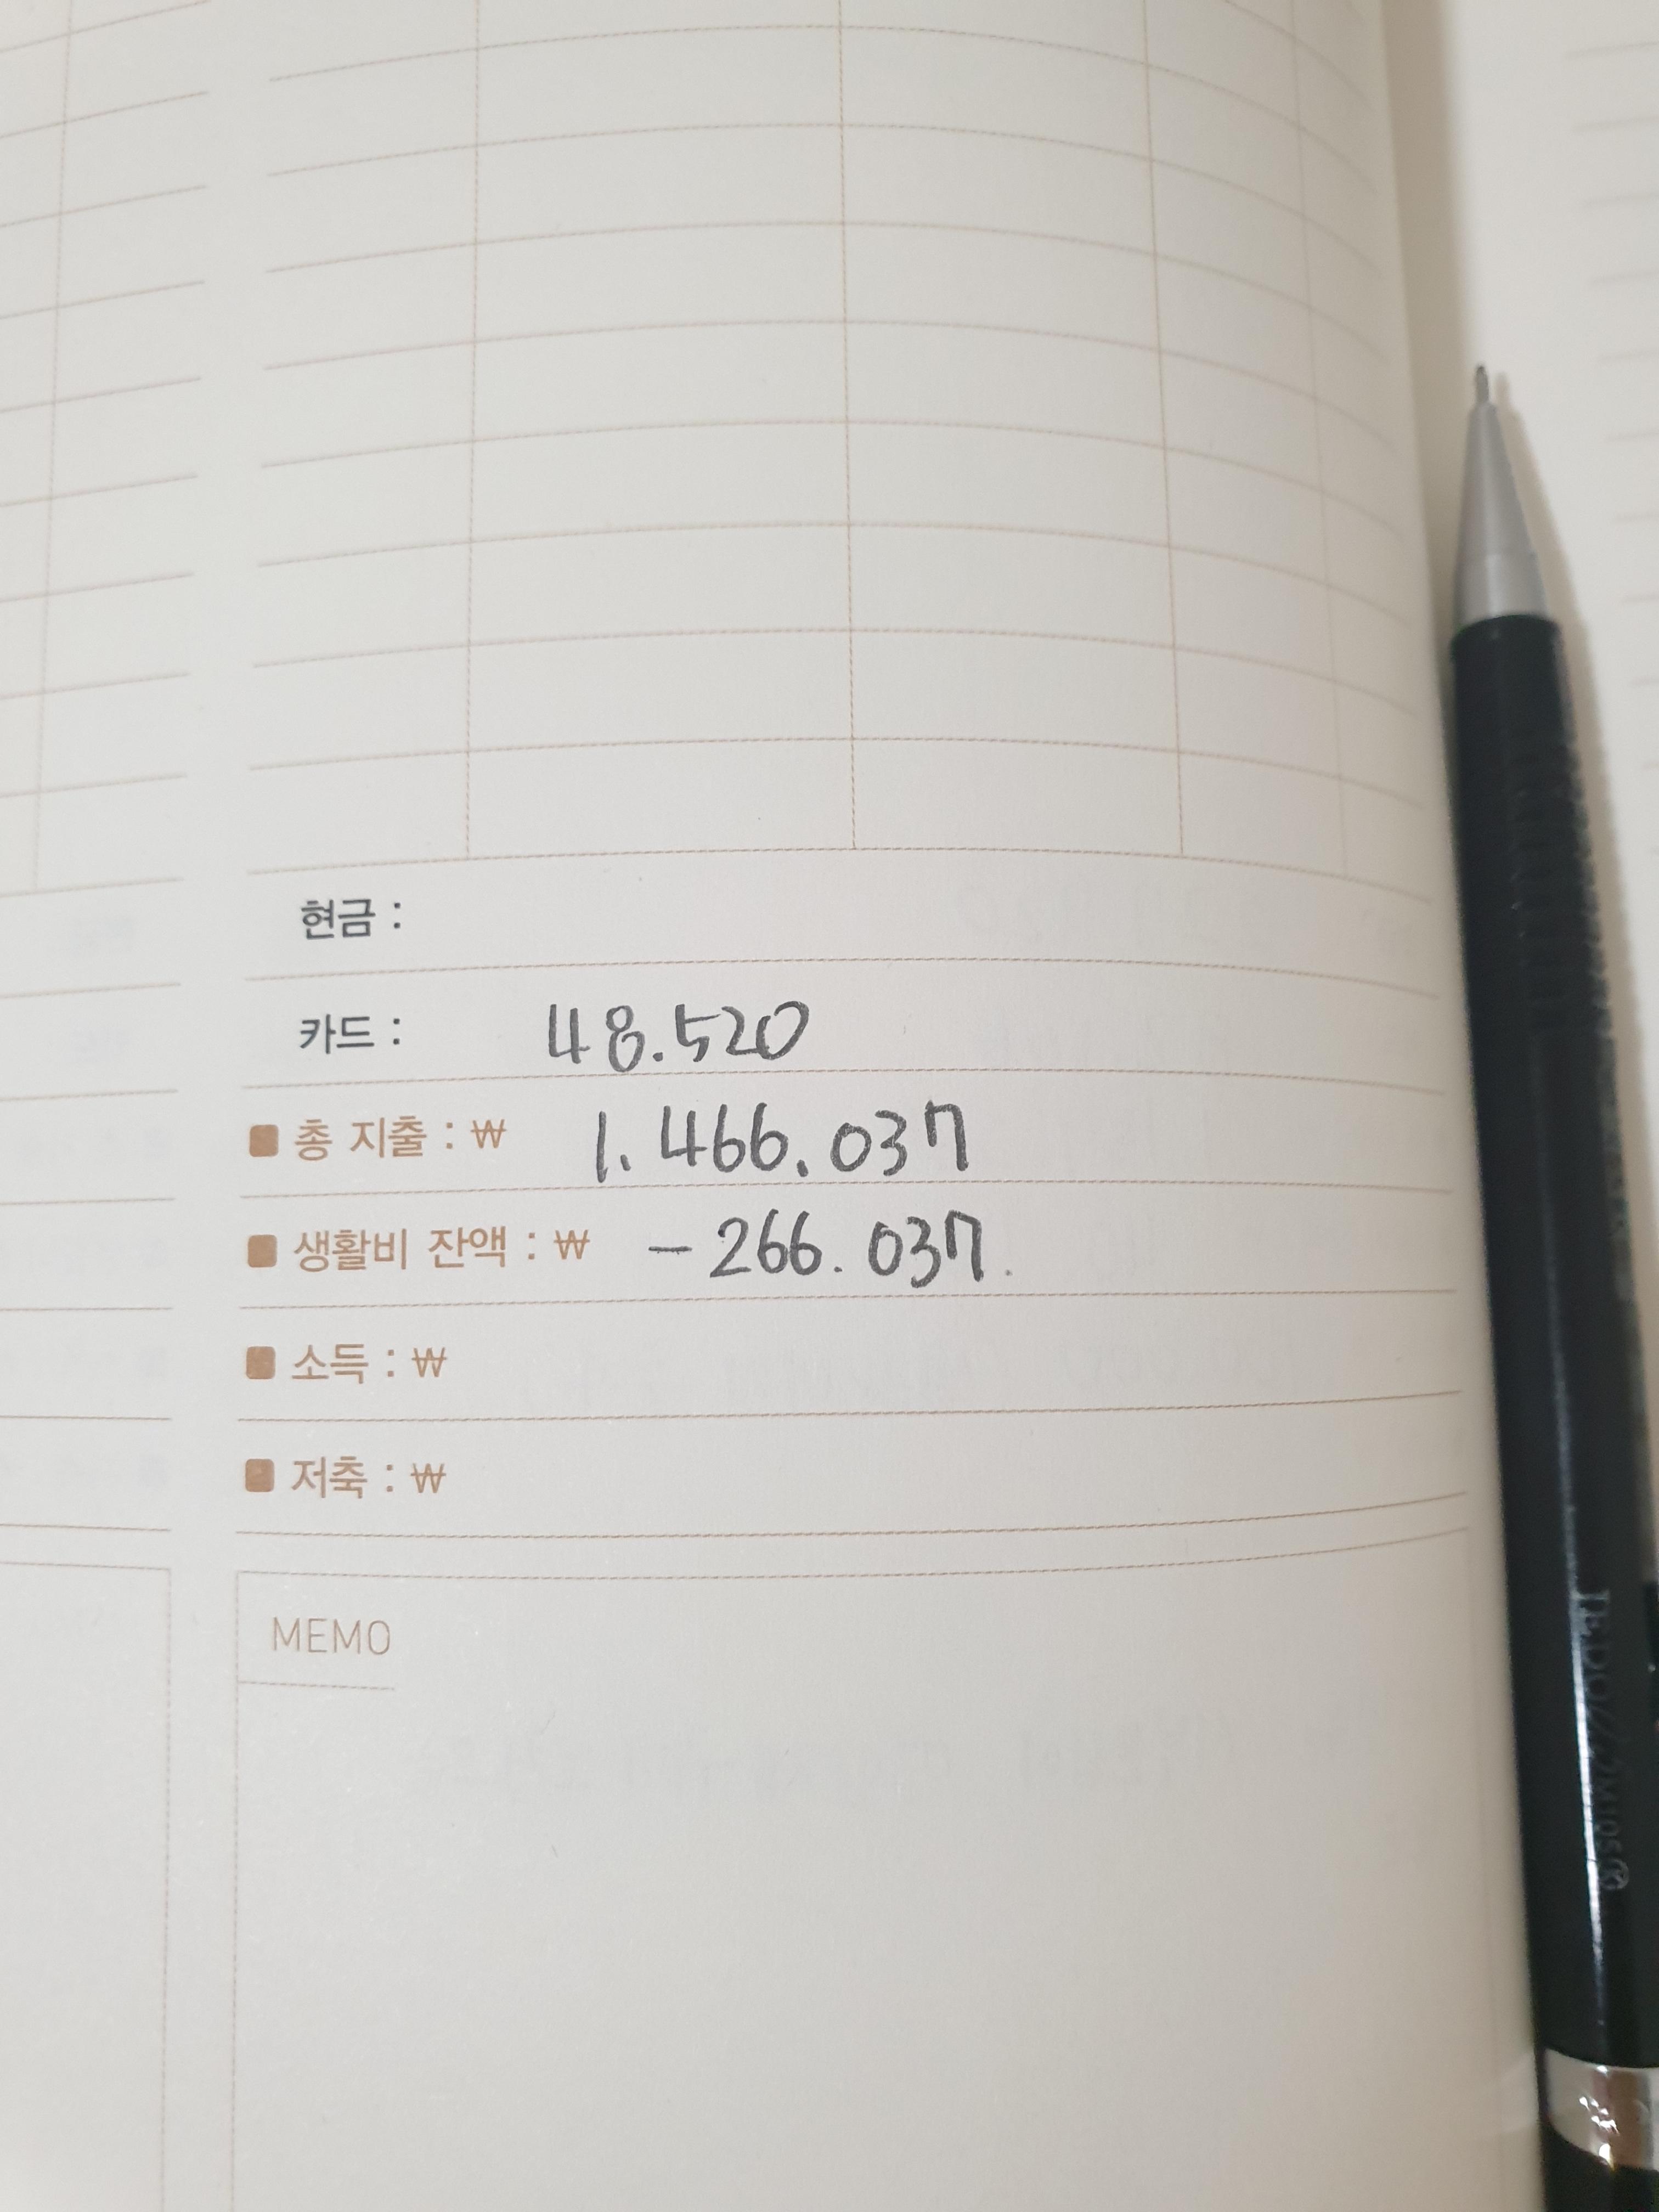 현금 :
카드 : 48.520
총 지출 : ₩ 1.466.037
생활비 잔액 : ₩ -266.037.
소득 : ₩
저축 : ₩
MEMO